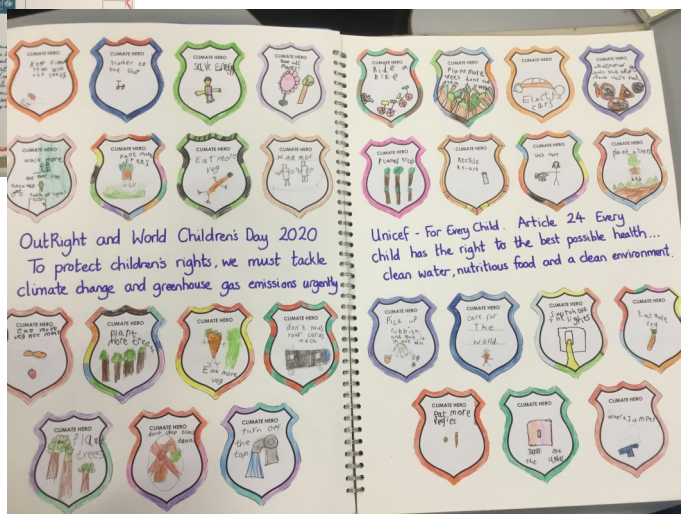 CLIMATE HERO
CLIMATE HERO
Scooter to
the Shop
CLIMATE HERO
Save Energy
CLIMATE HERO
CLIMATE HERO
Walk more
CLIMATE HERO
Plant more
trees
CLIMATE HERO
Eat more
veg
CLIMATE HERO
Walk more
OutRight and World Children's Day 2020
To protect children's rights, we must tackle
climate change and greenhouse gas emissions urgently
CLIMATE HERO
Eat more
veg not meat
CLIMATE HERO
Plant
more trees
CLIMATE HERO
Eat more
veg
CLIMATE HERO
don't
your car
much
CLIMATE HERO
Plant
trees
CLIMATE HERO
dont chop trees
down
CLIMATE HERO
turn off
the
tap
CLIMATE HERO
Ride a
bike
CLIMATE HERO
Plant more
CLIMATE HERO
Electric
cars
CLIMATE HERO
CLIMATE HERO
Plant trees
CLIMATE HERO
Re-use
CLIMATE HERO
Walk more
CLIMATE HERO
plant a trees
Unicef - For Every Child. Article 24 Every
child has the right to the best possible health...
clean water, nutritious food and a clean environment.
CLIMATE HERO
Pick up
rubbish
CLIMATE HERO
care for
The
world
CLIMATE HERO
Switch off
the lights
CLIMATE HERO
Eat more
veg
CLIMATE HERO
Eat more
vegies
CLIMATE HERO
the lights
CLIMATE HERO
Wear a jumper